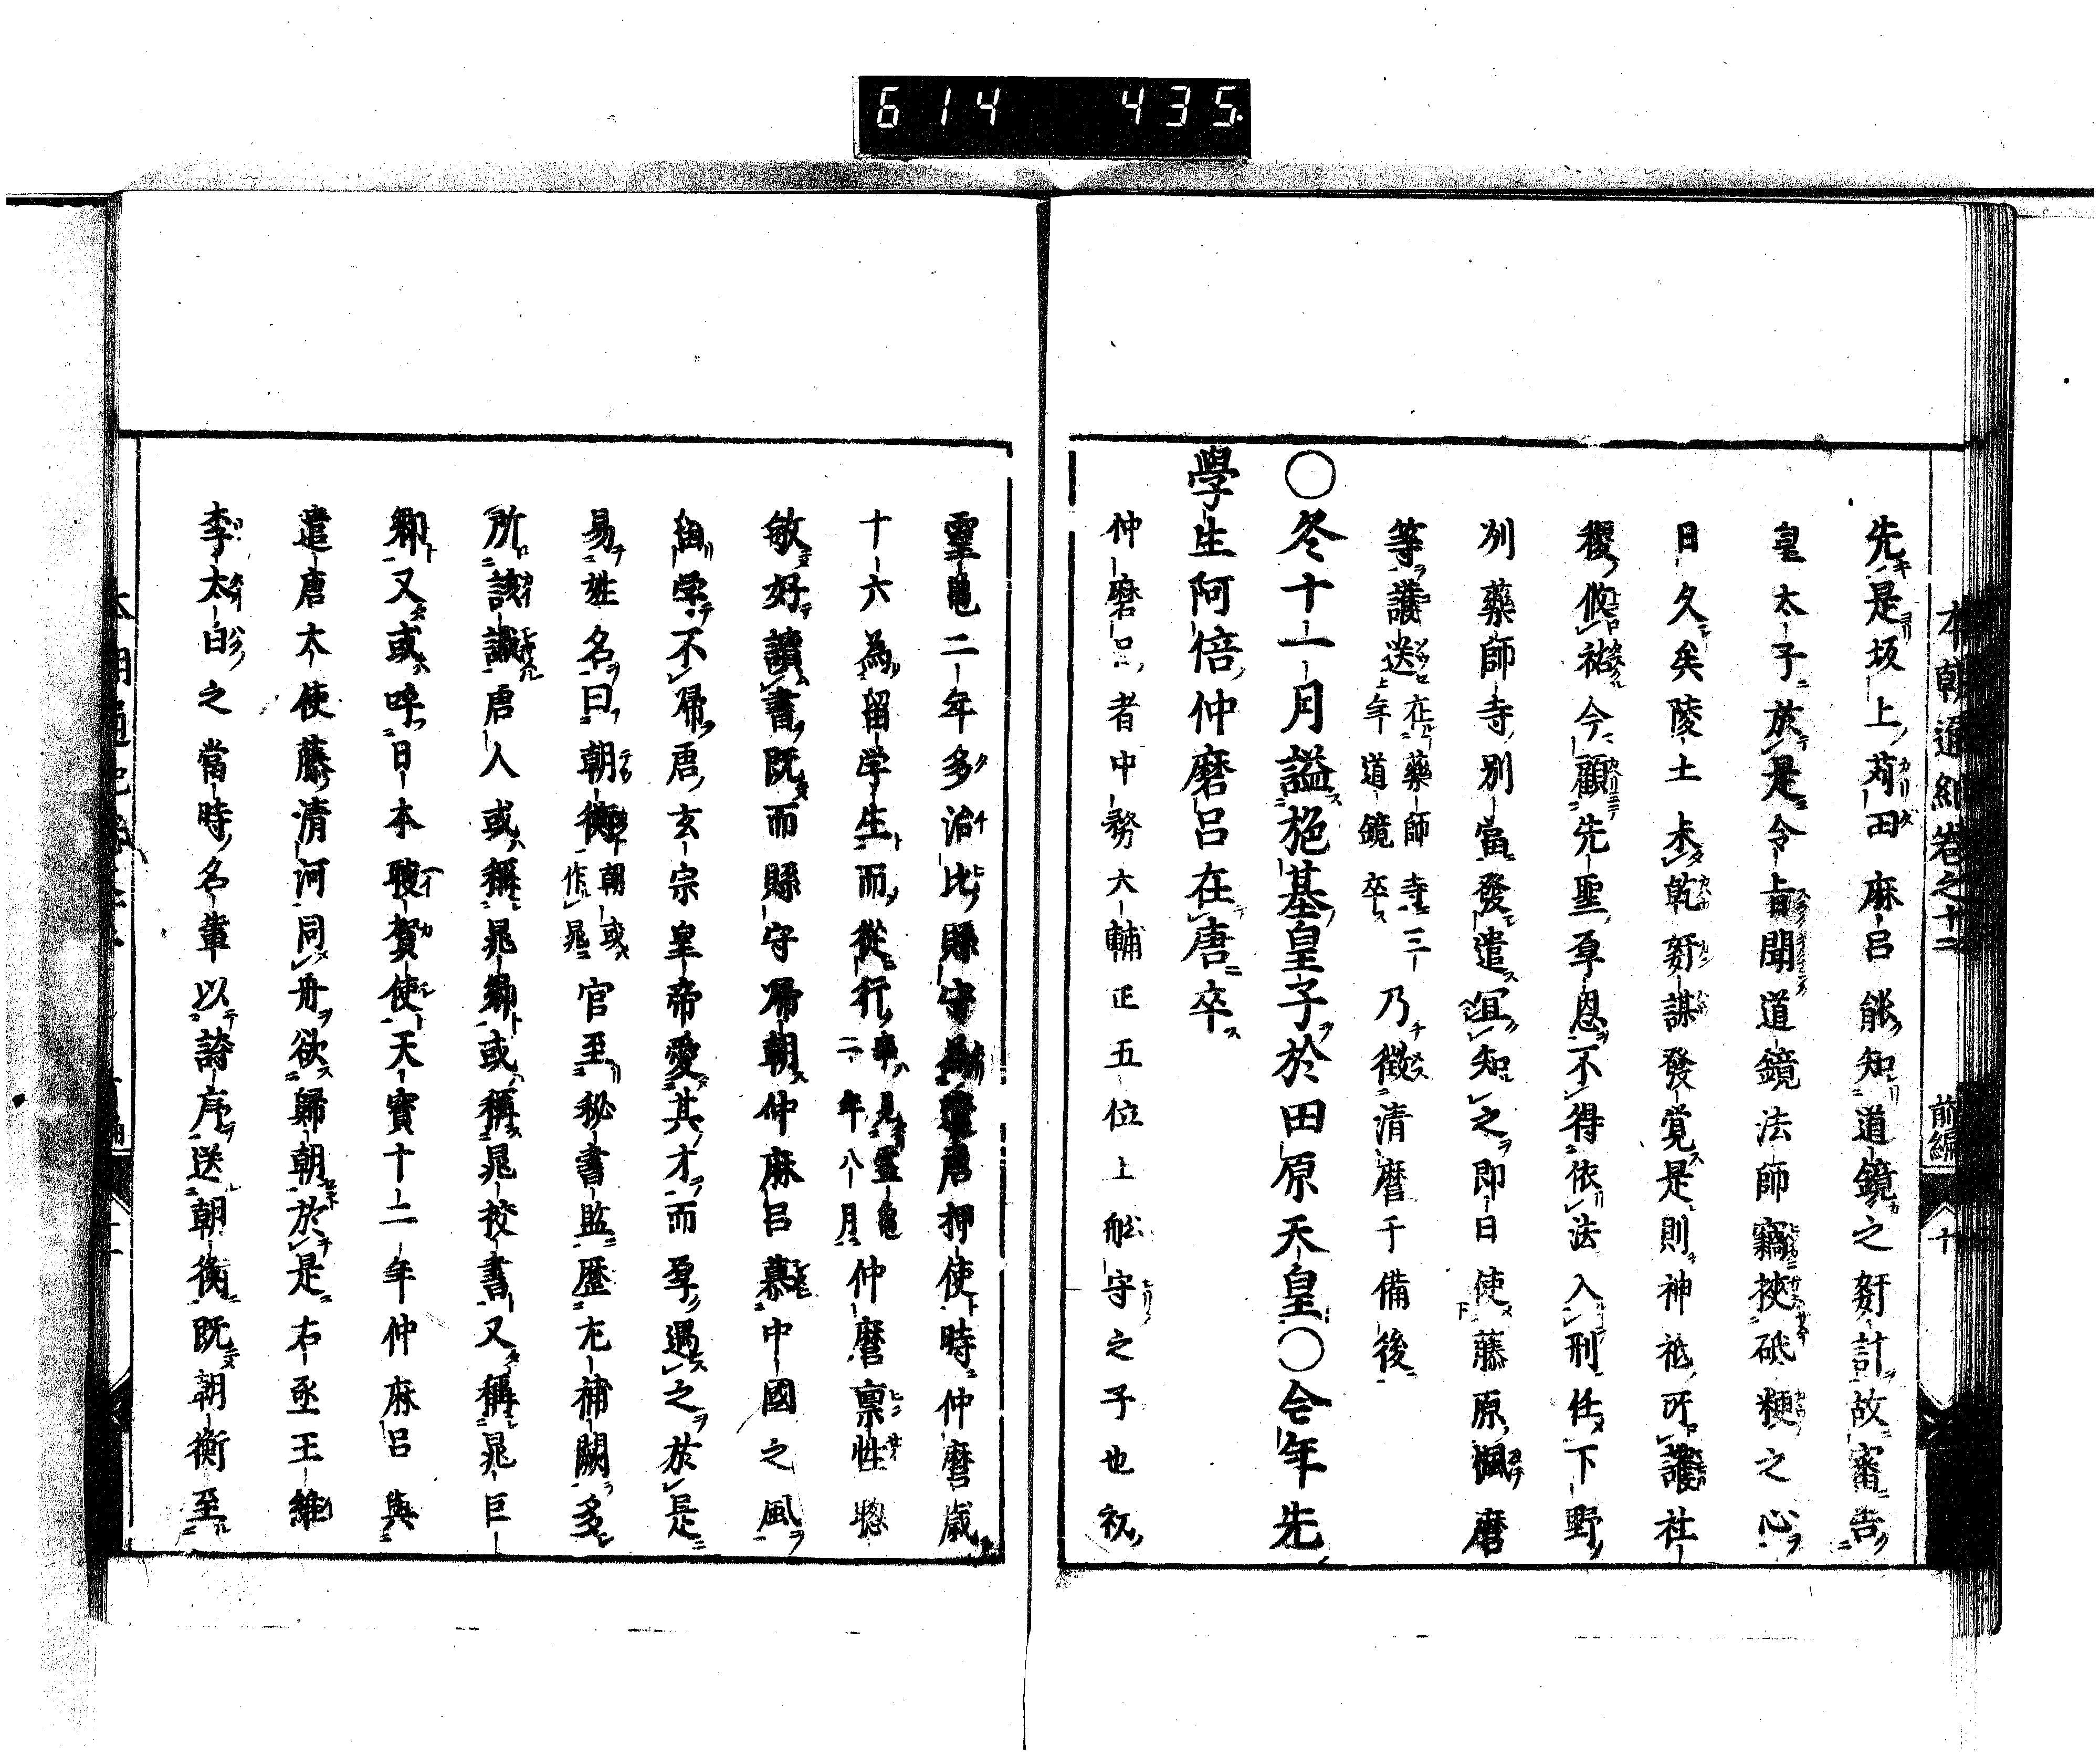 614 435
本朝通紀卷之十二 前編 十
先是坂上苅田麻呂能知道鏡之姧計故審告
皇太子於是令旨聞道鏡法師竊挾砥粳之心
日久矣陵土未乾姧謀發覚是則神祇所護社
稷攸祐今顧先聖厚恩不得依法入刑任下野
列藥師寺別當發遣宜知之即日使藤原楓麿
等護送在藥師寺三年道鏡卒乃徴清麿于備後
〇冬十一月謚施基皇子於田原天皇〇今年先
學生阿倍仲磨呂在唐卒
仲磨呂者中務大輔正五位上舩守之子也初
靈亀二年多治比縣守為遣唐押使時仲麿歳
十六為留学生而從行事見靈亀二年八月仲麿稟性聰
敏好讀書既而縣守帰朝仲麻呂慕中國之風
留学不帰唐玄宗皇帝愛其才而厚遇之於是
易姓名曰朝衡朝或作晁官至秘書監歴左補闕多
所該識唐人或稱晁卿或稱晁校書又稱晁巨
卿又或呼日本聘賀使天寳十二年仲麻呂與
遣唐大使藤清河同舟欲歸朝於是右丞王維
李太白之當時名輩以詩序送朝衡既朝衡至